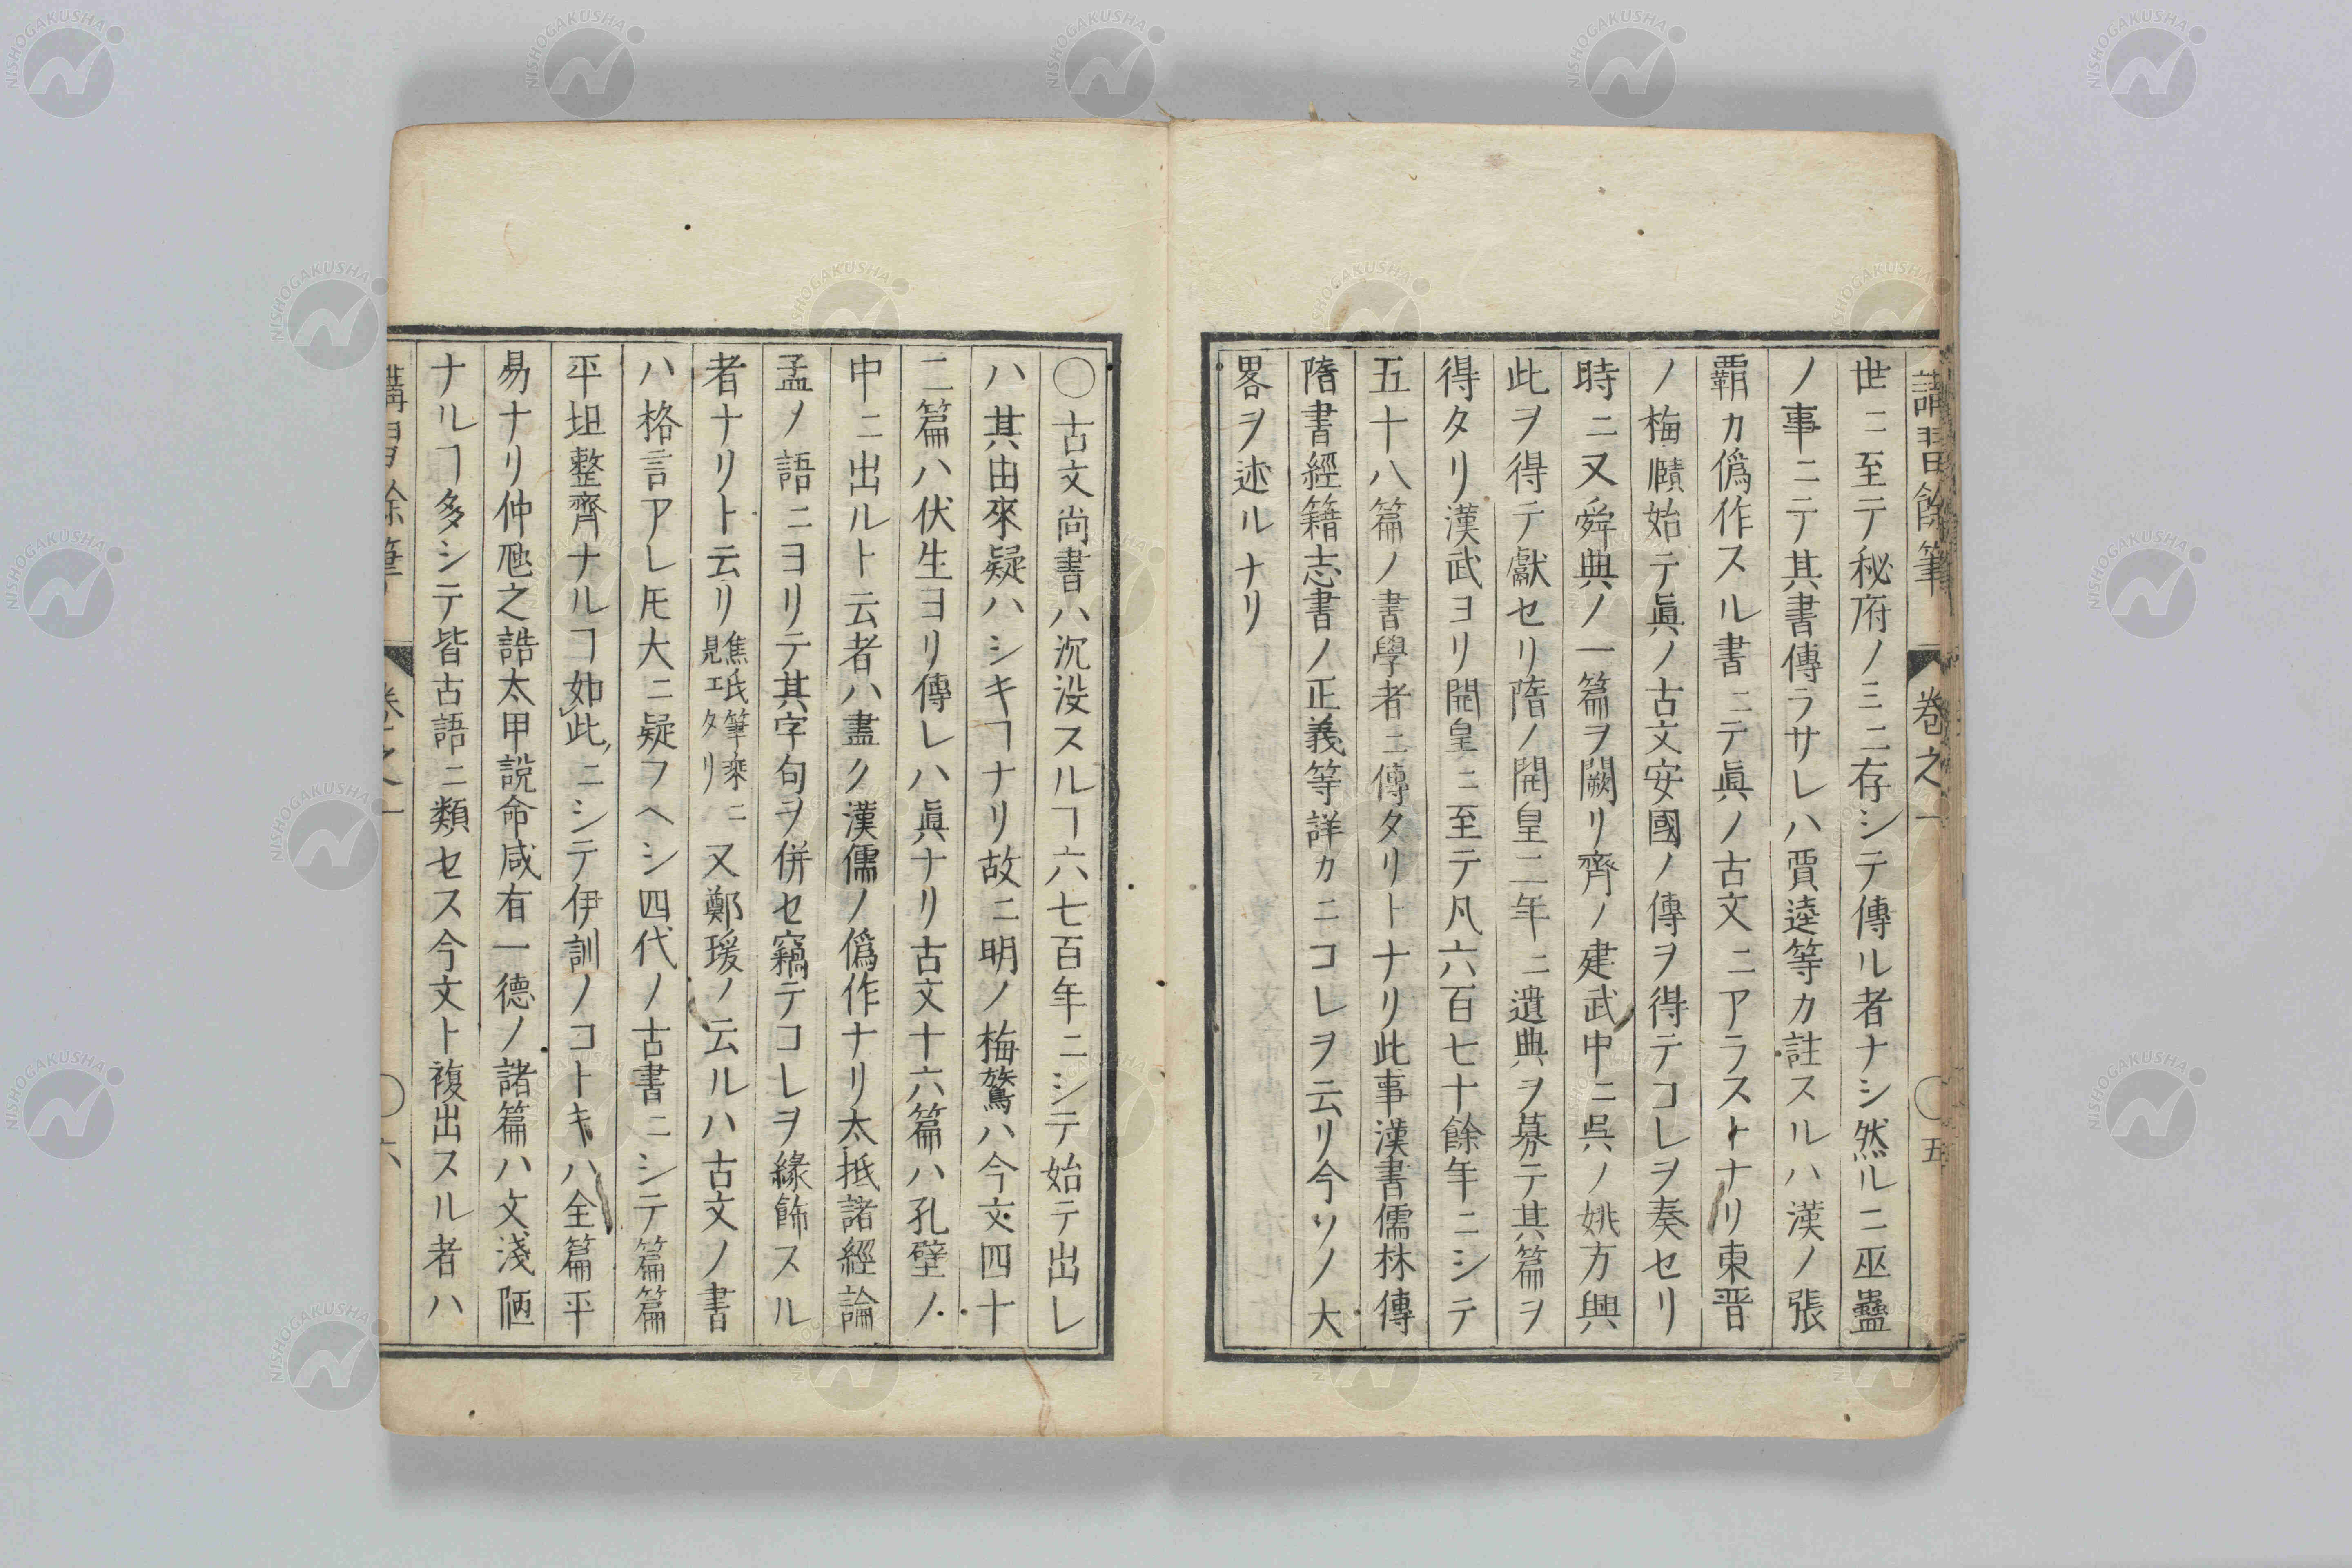 講習餘筆 卷之一 〇五
世ニ至テ秘府ノミニ存シテ傳ル者ナシ然ルニ巫蠱
ノ事ニテ其書傳ラサレハ賈逵等カ註スルハ漢ノ張
霸カ僞作スル書ニテ眞ノ古文ニアラストナリ東晋
ノ梅賾始テ眞ノ古文安國ノ傳ヲ得テコレヲ奏セリ
時ニ又舜典ノ一篇ヲ闕リ齊ノ建武中ニ呉ノ姚方興
此ヲ得テ獻セリ隋ノ開皇二年ニ遺典ヲ募テ其篇ヲ
得タリ漢武ヨリ開皇ニ至テ凡六百七十餘年ニシテ
五十八篇ノ書學者ニ傳タリトナリ此事漢書儒林傳
隋書經籍志書ノ正義等詳カニコレヲ云リ今ソノ大
畧ヲ述ルナリ
〇古文尚書ハ沉没スルヿ六七百年ニシテ始テ出レ
ハ其由來疑ハシキヿナリ故ニ明ノ梅鷟ハ今文四十
二篇ハ伏生ヨリ傳レハ眞ナリ古文十六篇ハ孔壁ノ
中ニ出ルト云者ハ盡ク漢儒ノ僞作ナリ太抵諸經論
孟ノ語ニヨリテ其字句ヲ併セ竊テコレヲ緣飾スル
者ナリト云リ焦氏筆乘ニ見エタリ又鄭瑗ノ云ルハ古文ノ書
ハ格言アレ𪜈大ニ疑フヘシ四代ノ古書ニシテ篇篇
平坦整齊ナルヿ如此ニシテ伊訓ノコトキハ全篇平
易ナリ仲虺之誥太甲説命咸有一德ノ諸篇ハ文淺陋
ナルヿ多シテ皆古語ニ類セス今文ト複出スル者ハ
講習餘筆 卷之一 〇六